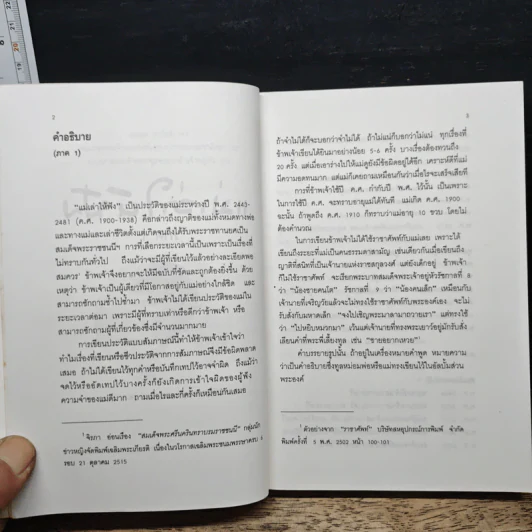 2
คำอธิบาย
(ภาค 1)
"แม่เล่าให้ฟัง" เป็นประวัติของแม่ระหว่างปี พ.ศ. 2443-
2481 (ค.ศ. 1900-1938) คือกล่าวถึงญาติของแม่ทั้งหมดทางพ่อ
และทางแม่และเล่าชีวิตตั้งแต่เกิดจนถึงได้รับพระราชทานยศเป็น
สมเด็จพระราชชนนี¹ การที่เลือกระยะเวลานี้เป็นเพราะเป็นเรื่องที่
ไม่ทราบกันทั่วไป ถึงแม้ว่าจะมีผู้ที่เขียนไว้แล้วอย่างละเอียดพอ
สมควร ข้าพเจ้าจึงอยากจะให้มีฉบับที่ชัดและถูกต้องยิ่งขึ้น ด้วย
เหตุว่า ข้าพเจ้าเป็นผู้เดียวที่มีโอกาสอยู่กับแม่อย่างใกล้ชิด และ
สามารถซักถามซ้ำไปซ้ำมา ข้าพเจ้าไม่ได้เขียนประวัติของแม่ใน
ระยะเวลาต่อมา เพราะมีผู้ที่ทราบเท่าหรือดีกว่าข้าพเจ้า หรือ
สามารถถามผู้ที่เกี่ยวข้องซึ่งมีจำนวนมากมาย
การเขียนประวัติแบบสัมภาษณ์นี้ทำให้ข้าพเจ้าเข้าใจว่า
ทำไมเรื่องที่เขียนหรือชีวประวัติจากการสัมภาษณ์จึงมีข้อผิดพลาด
เสมอ ถ้าไม่ได้เขียนไว้ทุกคำหรือบันทึกเทปไว้อาจจำผิด ถึงแม้ว่า
จดไว้หรืออัดเทปไว้บางครั้งก็ยังเกิดการเข้าใจผิดของผู้ฟัง
ความจำของแม่ดีมาก ถามเมื่อไรและกี่ครั้งก็เหมือนกันเสมอ
¹ จิรภา อ่อนเรือง "สมเด็จพระศรีนครินทราบรมราชชนนี" กลุ่มนัก
ข่าวหญิงจัดพิมพ์เฉลิมพระเกียรติ เนื่องในวโรกาสเฉลิมพระชนมพรรษาครบ 6
รอบ 21 ตุลาคม 2515
3
ถ้าจำไม่ได้ก็จะบอกว่าจำไม่ได้ ถ้าไม่แน่ก็บอกว่าไม่แน่ ทุกเรื่องที่
ข้าพเจ้าเขียนได้ยินมาอย่างน้อย 5-6 ครั้ง บางเรื่องต้องทวนถึง
20 ครั้ง แต่เมื่อเอาร่างไปให้แม่ดูยังมีข้อผิดอยู่ได้อีก เคราะห์ดีที่แม่
มีความอดทนมาก แต่แม่ก็เคยถามเหมือนกันว่าเมื่อไรจะเสร็จเสียที
การที่ข้าพเจ้าใช้ปี ค.ศ. กำกับปี พ.ศ. ไว้นั้น เป็นเพราะ
ในการใช้ปี ค.ศ. จะทราบอายุแม่ได้ทันที แม่เกิด ค.ศ. 1900
ฉะนั้น ถ้าพูดถึง ค.ศ. 1910 ก็ทราบว่าแม่อายุ 10 ขวบ โดยไม่
ต้องคำนวณ
ในการเขียนข้าพเจ้าไม่ได้ใช้ราชาศัพท์กับแม่เลย เพราะได้
เขียนถึงเรื่องที่แม่เป็นคนธรรมดาสามัญ เช่นเดียวกันเมื่อเขียนถึง
ญาติที่สนิทที่เป็นเจ้านายแห่งราชสกุลวงศ์ แต่ยังเด็กอยู่ ข้าพเจ้า
ก็ไม่ใช้ราชาศัพท์ จะเรียกพระบาทสมเด็จพระเจ้าอยู่หัวรัชกาลที่ 8
ว่า "น้องชายคนโต" รัชกาลที่ 9 ว่า "น้องคนเล็ก" เหมือนกับ
เจ้านายที่เจริญวัยแล้วจะไม่ทรงใช้ราชาศัพท์กับพระองค์เอง จะไม่
รับสั่งกับมหาดเล็กว่า "จงไปเชิญพระมาลามาถวายเรา" แต่ทรงใช้
ว่า "ไปหยิบหมวกมา" เว้นแต่เจ้านายที่ทรงพระเยาว์อยู่มักรับสั่ง
อย่างที่พระพี่เลี้ยงทูล เช่น "ชายอยากเสวย"¹
คำบรรยายรูปนั้น ถ้าอยู่ในเครื่องหมายคำพูด หมายความ
ว่าเป็นคำอธิบายซึ่งทูลหม่อมพ่อหรือแม่ทรงเขียนไว้ในอัลบั้มส่วน
พระองค์
¹ ตัวอย่างจาก "ราชาศัพท์" บริษัทสหอุปกรณ์การพิมพ์ จำกัด
พิมพ์ครั้งที่ 5 พ.ศ. 2502 หน้า 100-101